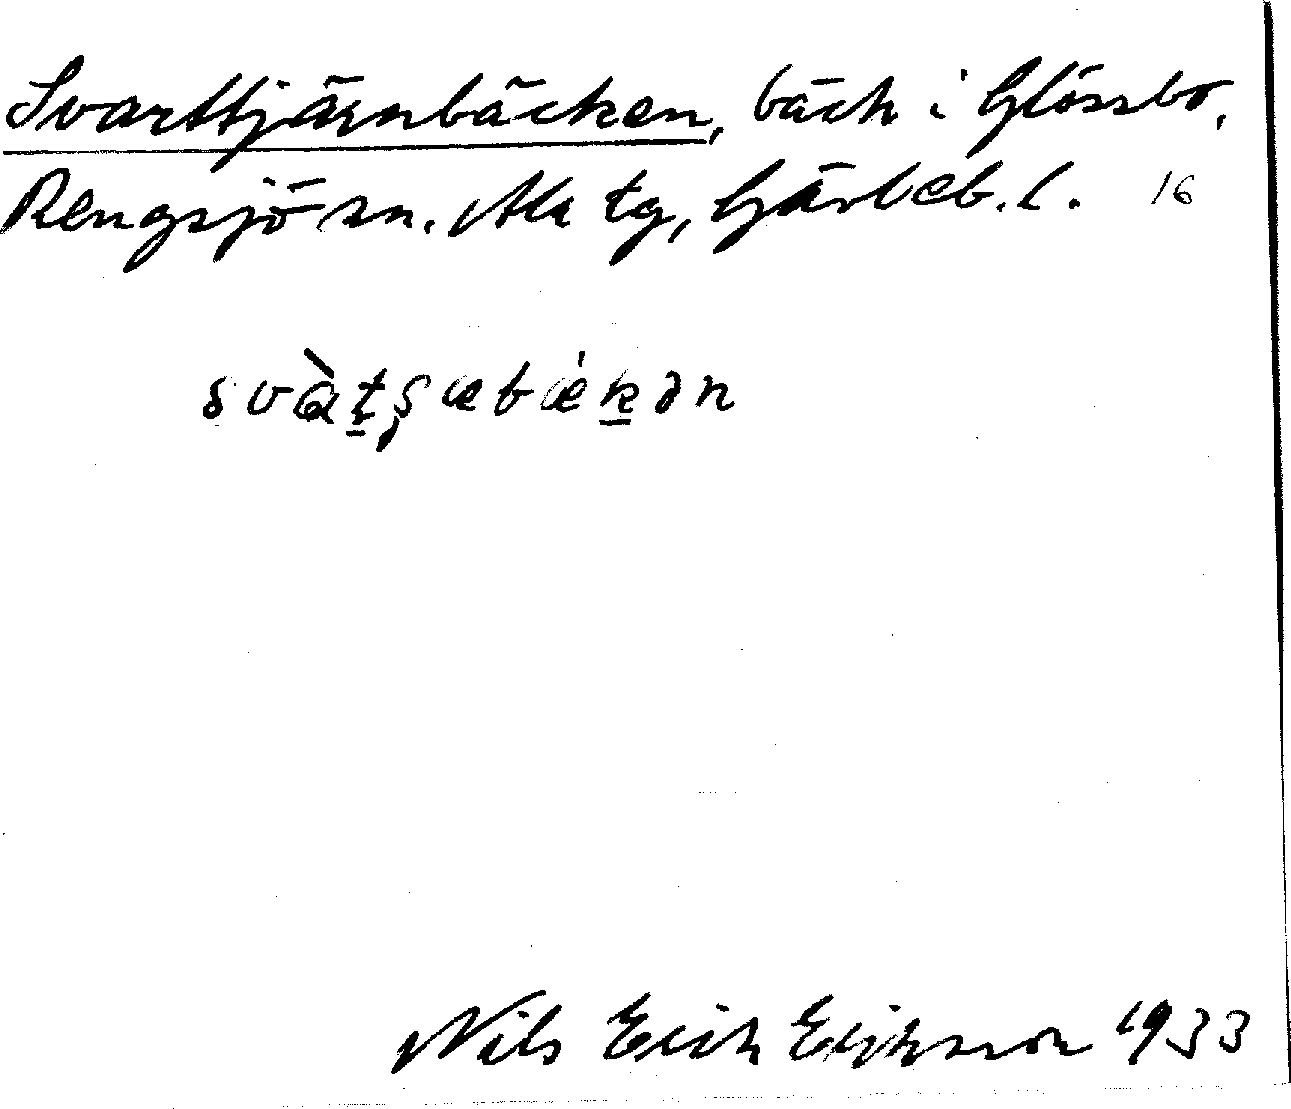 Svarttjärnbäcken, bäck i Glössbo,
Rengsjö sn. Ala tg, Gävleb. l. 16
svàt̠ʂæbǽk̠ən
Nils Erik Eriksson 1933